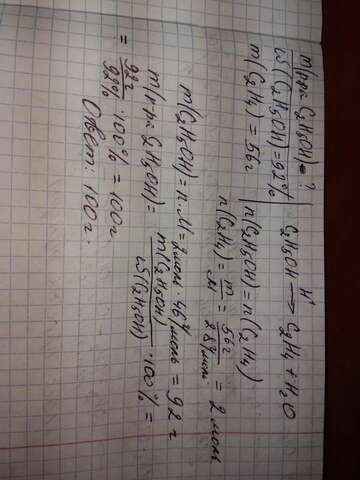 m(р-ра C₂H₅OH) = ?
ω(C₂H₅OH) = 92%
m(C₂H₄) = 56г
C₂H₅OH H⁺→ C₂H₄ + H₂O
n(C₂H₅OH) = n(C₂H₄)
n(C₂H₄) = m/M = 56г/28г/моль = 2 моль
m(C₂H₅OH) = n·M = 2моль · 46г/моль = 92 г
m(р-ра C₂H₅OH) = m(C₂H₅OH)/ω(C₂H₅OH) · 100% =
= 92г/92% · 100% = 100г.
Ответ: 100г.